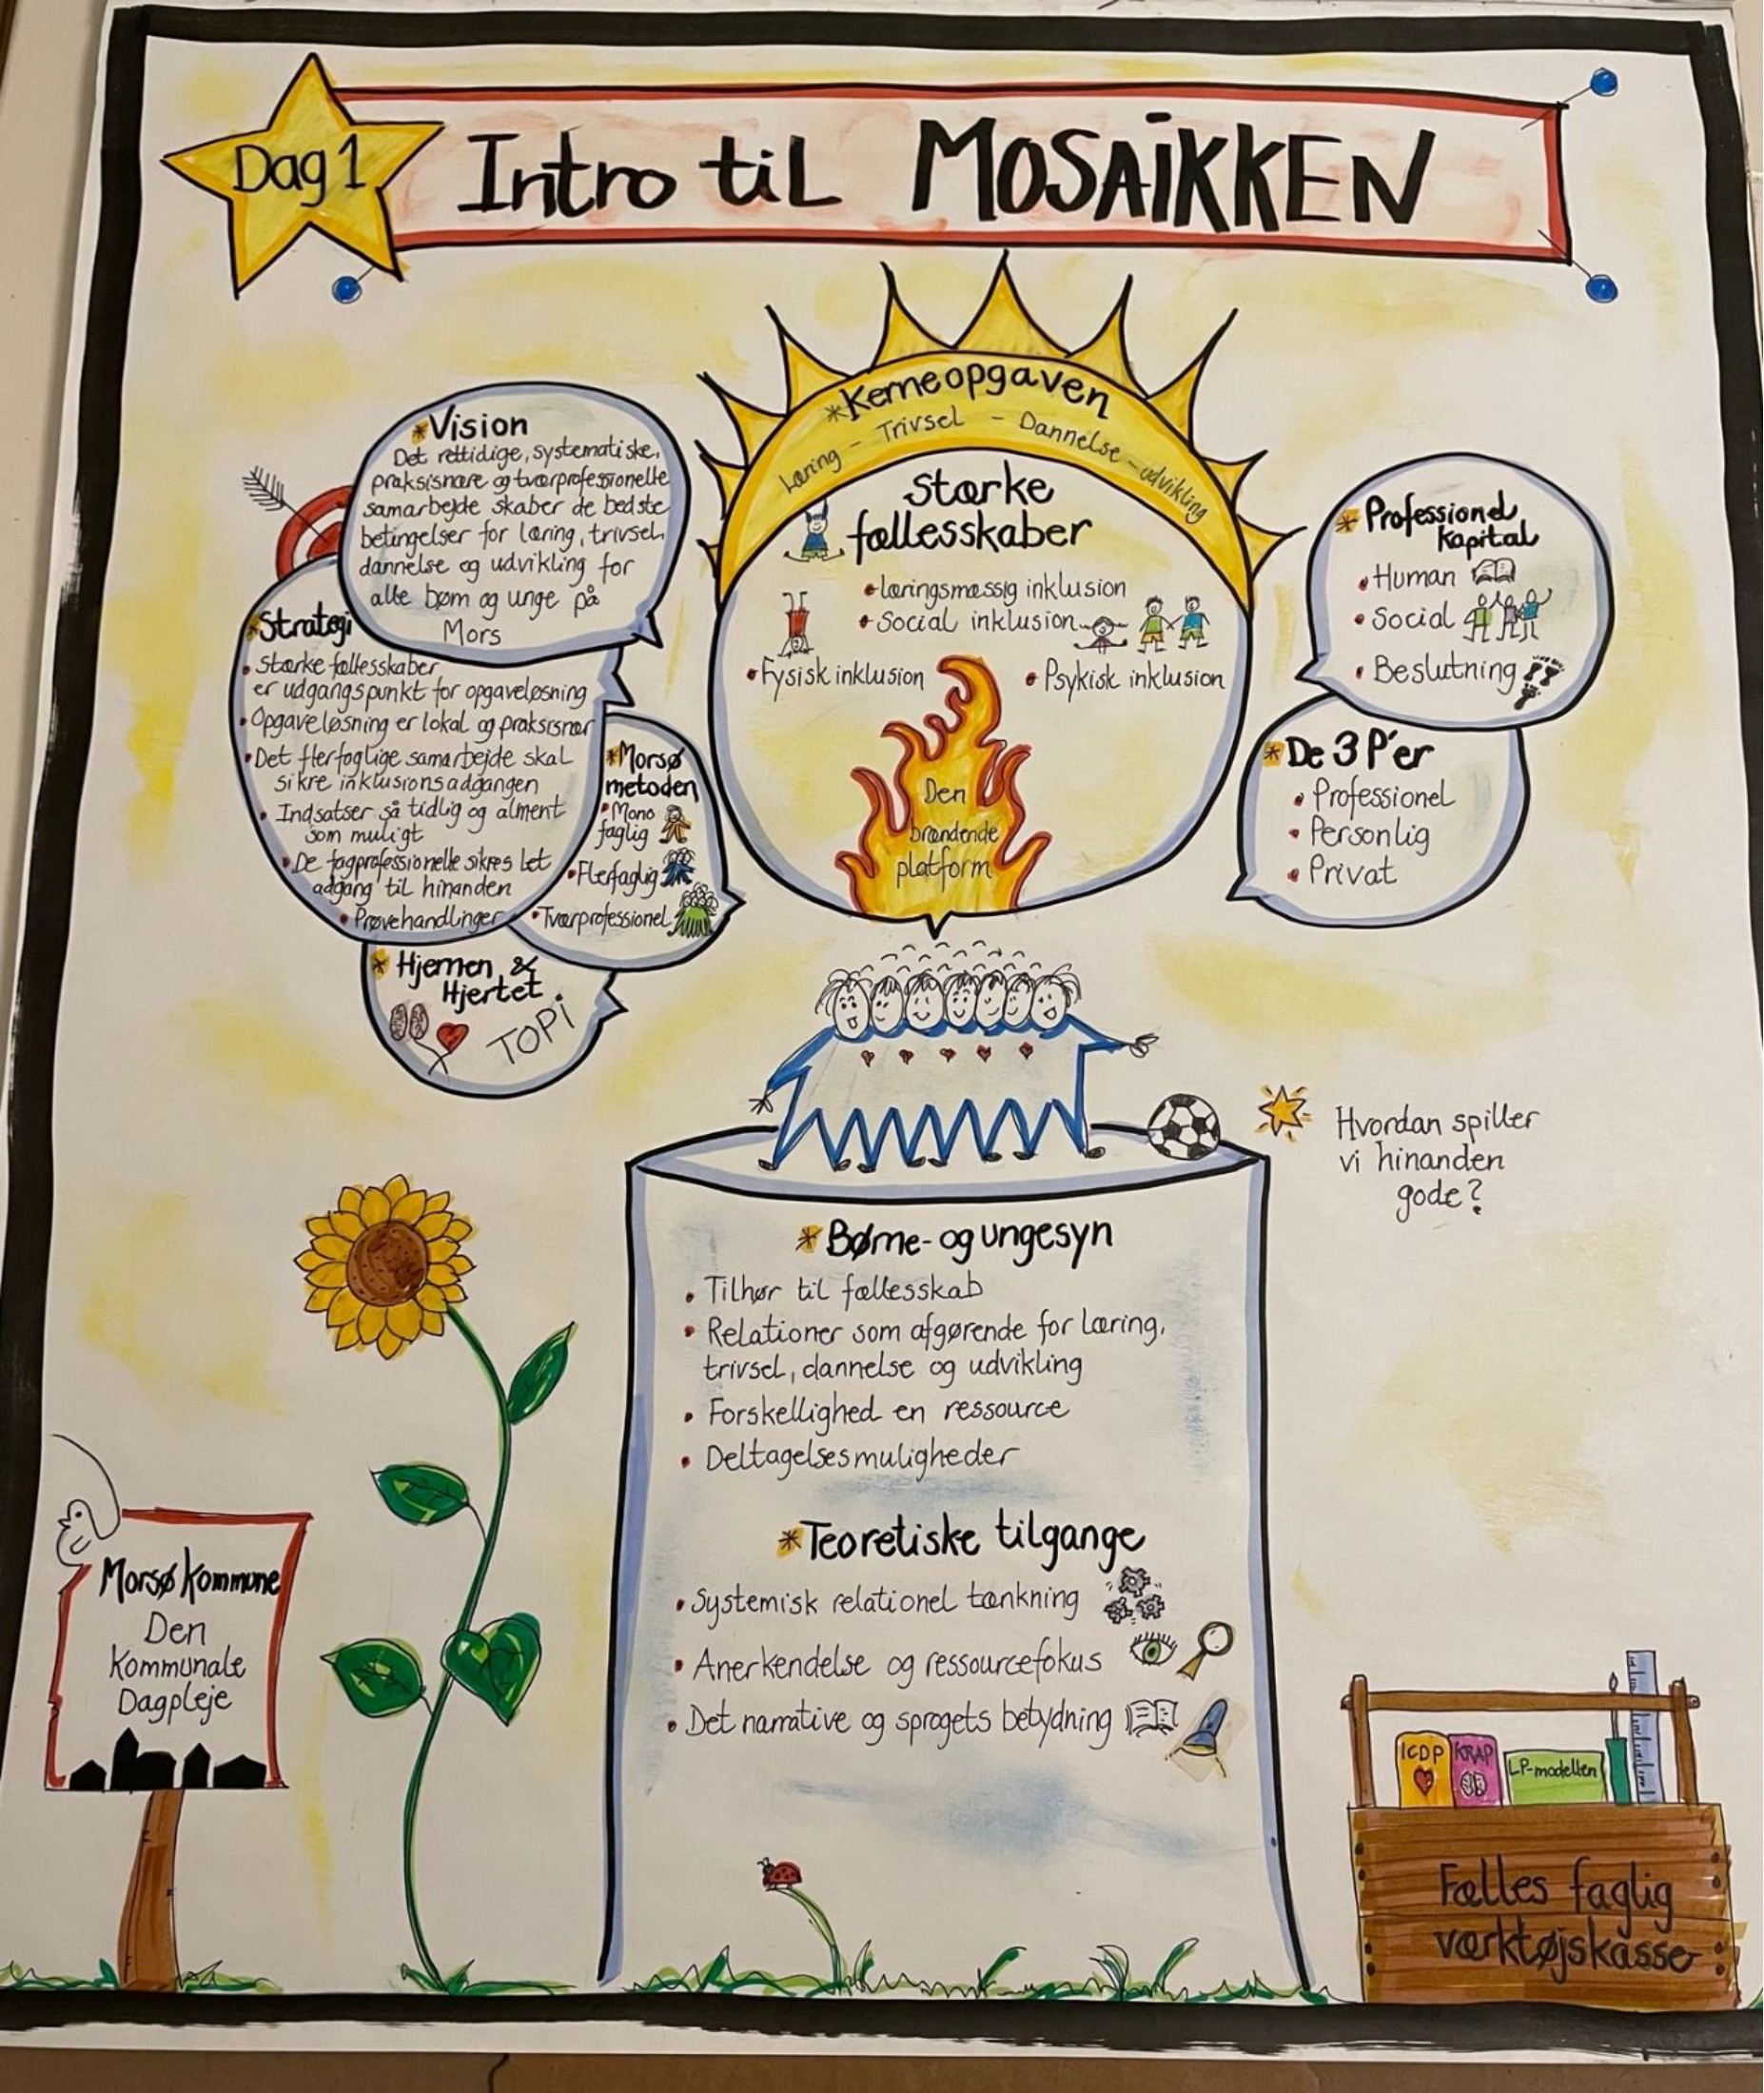 Dag 1
Intro til MOSAIKKEN
*Vision
Det rettidige, systematiske,
praksisnære og tværprofessionelle
samarbejde skaber de bedste
betingelser for læring, trivsel,
dannelse og udvikling for
alle børn og unge på
Mors
*Strategi
• Stærke fællesskaber
er udgangspunkt for opgaveløsning
• Opgaveløsning er lokal og praksisnær
• Det flerfaglige samarbejde skal
sikre inklusionsadgangen
• Indsatser så tidlig og alment
som muligt
• De fagprofessionelle sikres let
adgang til hinanden
• Prøvehandlinger
*Morsø
metoden
• Mono
faglig
• Flerfaglig
• Tværprofessionel
* Hjernen &
Hjertet
TOPI
*Kerneopgaven
Læring - Trivsel - Dannelse - udvikling
Stærke
fællesskaber
• læringsmæssig inklusion
• Social inklusion
• Fysisk inklusion
• Psykisk inklusion
Den
brændende
platform
* Professionel
kapital
• Human
• Social
• Beslutning
* De 3 P'er
• Professionel
• Personlig
• Privat
Hvordan spiller
vi hinanden
gode?
* Børne- og ungesyn
• Tilhør til fællesskab
• Relationer som afgørende for læring,
trivsel, dannelse og udvikling
• Forskellighed en ressource
• Deltagelsesmuligheder
*Teoretiske tilgange
• Systemisk relationel tænkning
• Anerkendelse og ressourcefokus
• Det narrative og sprogets betydning
Morsø Kommune
Den
Kommunale
Dagpleje
ICDP
KRAP
LP-modellen
Fælles faglig
værktøjskasse